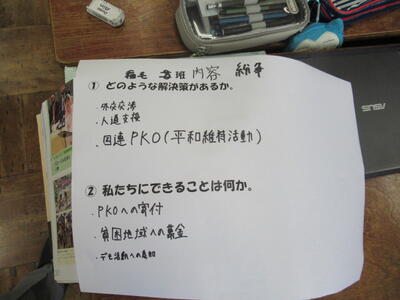 班 内容 紛争
① どのような解決策があるか。
・外交交渉
・人道支援
・国連PKO(平和維持活動)
② 私たちにできることは何か。
・PKOへの寄付
・貧困地域への募金
・デモ活動への参加
ASUS